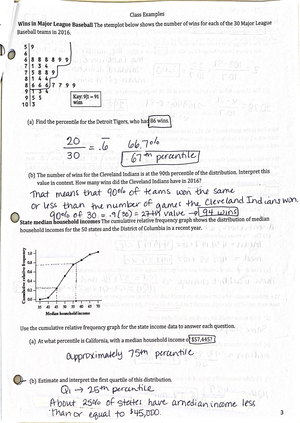 Class Examples
Wins in Major League Baseball The stemplot below shows the number of wins for each of the 30 Major League
Baseball teams in 2016.
5 9
6
6 8 8 8 8 9 9
7 1 3 4
7 5 8 8 9
8 1 4 4
8 6 6 6 7 7 9 9
9 1 3 4
9 5 5
10 3
Key: 9|1 = 91
win
(a) Find the percentile for the Detroit Tigers, who had 86 wins.
20/30 = .6 66.7%
67th percentile
(b) The number of wins for the Cleveland Indians is at the 90th percentile of the distribution. Interpret this
value in context. How many wins did the Cleveland Indians have in 2016?
That means that 90% of teams won the same
or less than the number of games the Cleveland Indians won.
90% of 30 = .9(30) = 27th value → 94 wins
State median household incomes The cumulative relative frequency graph shows the distribution of median
household incomes for the 50 states and the District of Columbia in a recent year.
Cumulative relative frequency
1.0
0.8
0.6
0.4
0.2
0.0
Median household income
Use the cumulative relative frequency graph for the state income data to answer each question.
(a) At what percentile is California, with a median household income of $57,445?
approximately 75th percentile
(b) Estimate and interpret the first quartile of this distribution.
Q1 → 25th percentile
About 25% of states have a median income less
than or equal to $45,000.
3